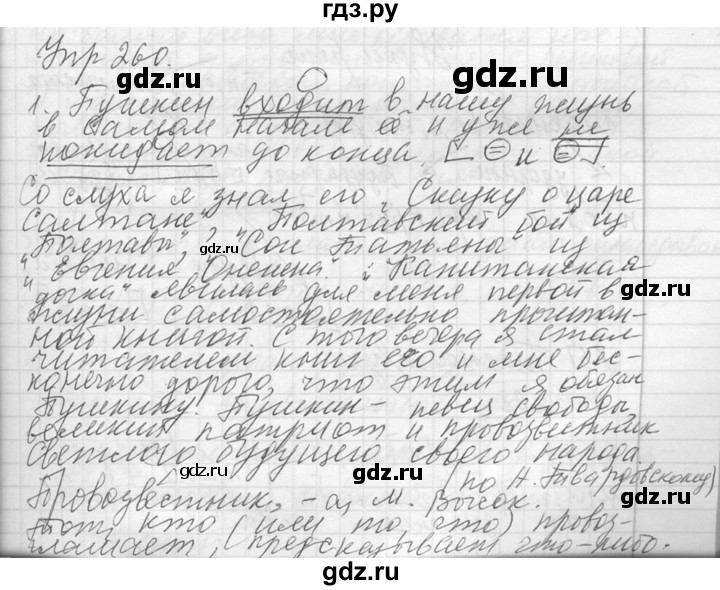 гдз.ру
Упр 260.
1. Пушкин входит в нашу жизнь
в самом начале её и уже не
покидает до конца [ и ]
Со слуха я знал его „Сказку о царе
Салтане", „Полтавский бой" из
„Полтавы", „Сон Татьяны" из
gdz.ru
„Евгения Онегина. „Капитанская
дочка" явилась для меня первой в
жизни самостоятельно прочитан-
ной книгой. С того вечера я стал
читателем книг его и мне бес-
конечно дорого, что этим я обязан
Пушкину. Пушкин - певец свободы,
великий патриот и провозвестник
светлого будущего своего народа
gdz.ru
(по А. Твардовскому)
Провозвестник, - а, м. Высок.
Тот, кто (или то, что) провоз-
глашает, предсказывает что-либо.
gdz.ru
gdz.ru
gdz.ru